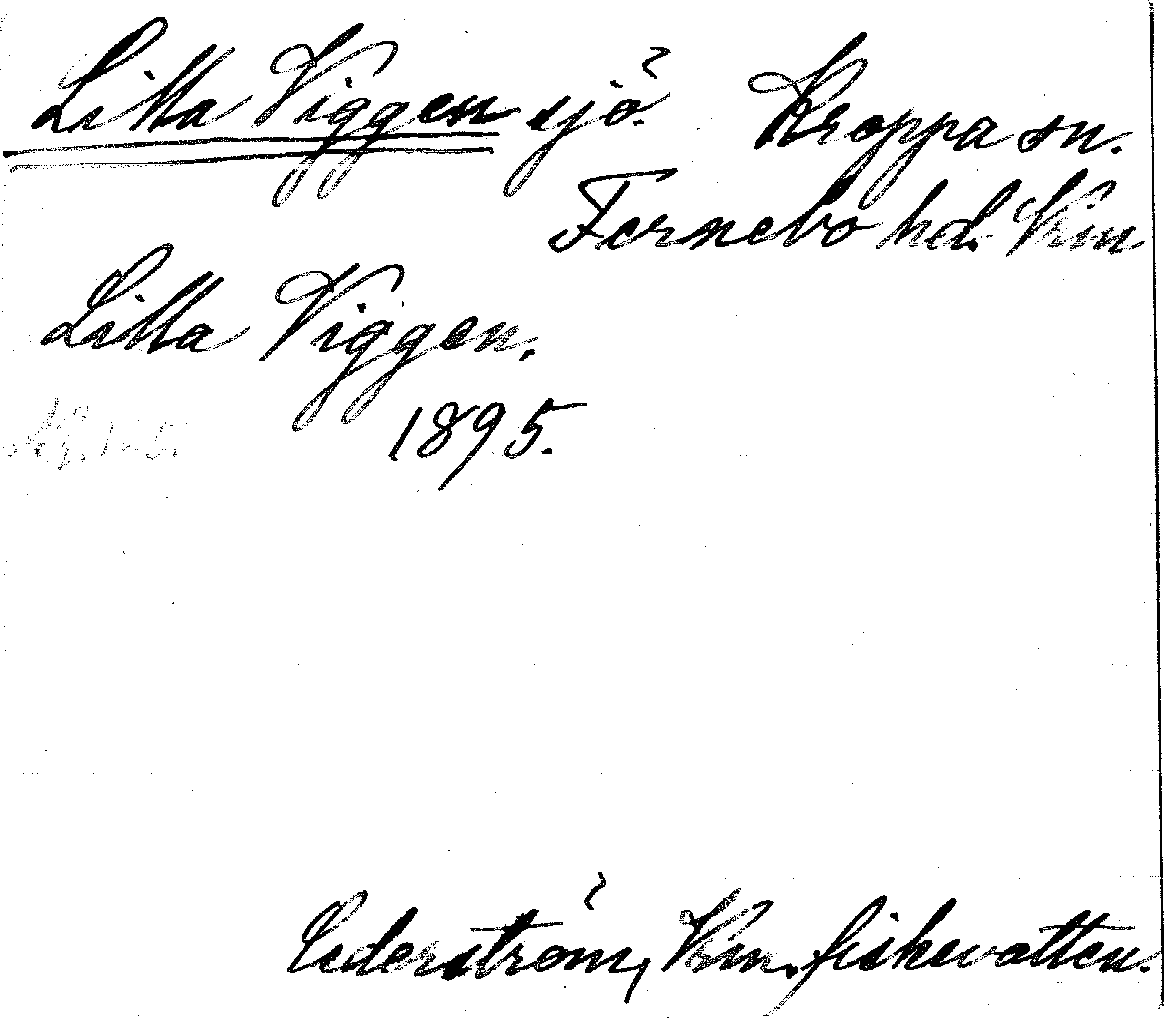 Lilla Viggen sjö. Kroppa sn.
Fernebo hd. Vrm
Lilla Viggen.
1895.
Cederström, Vrm. fiskevatten.